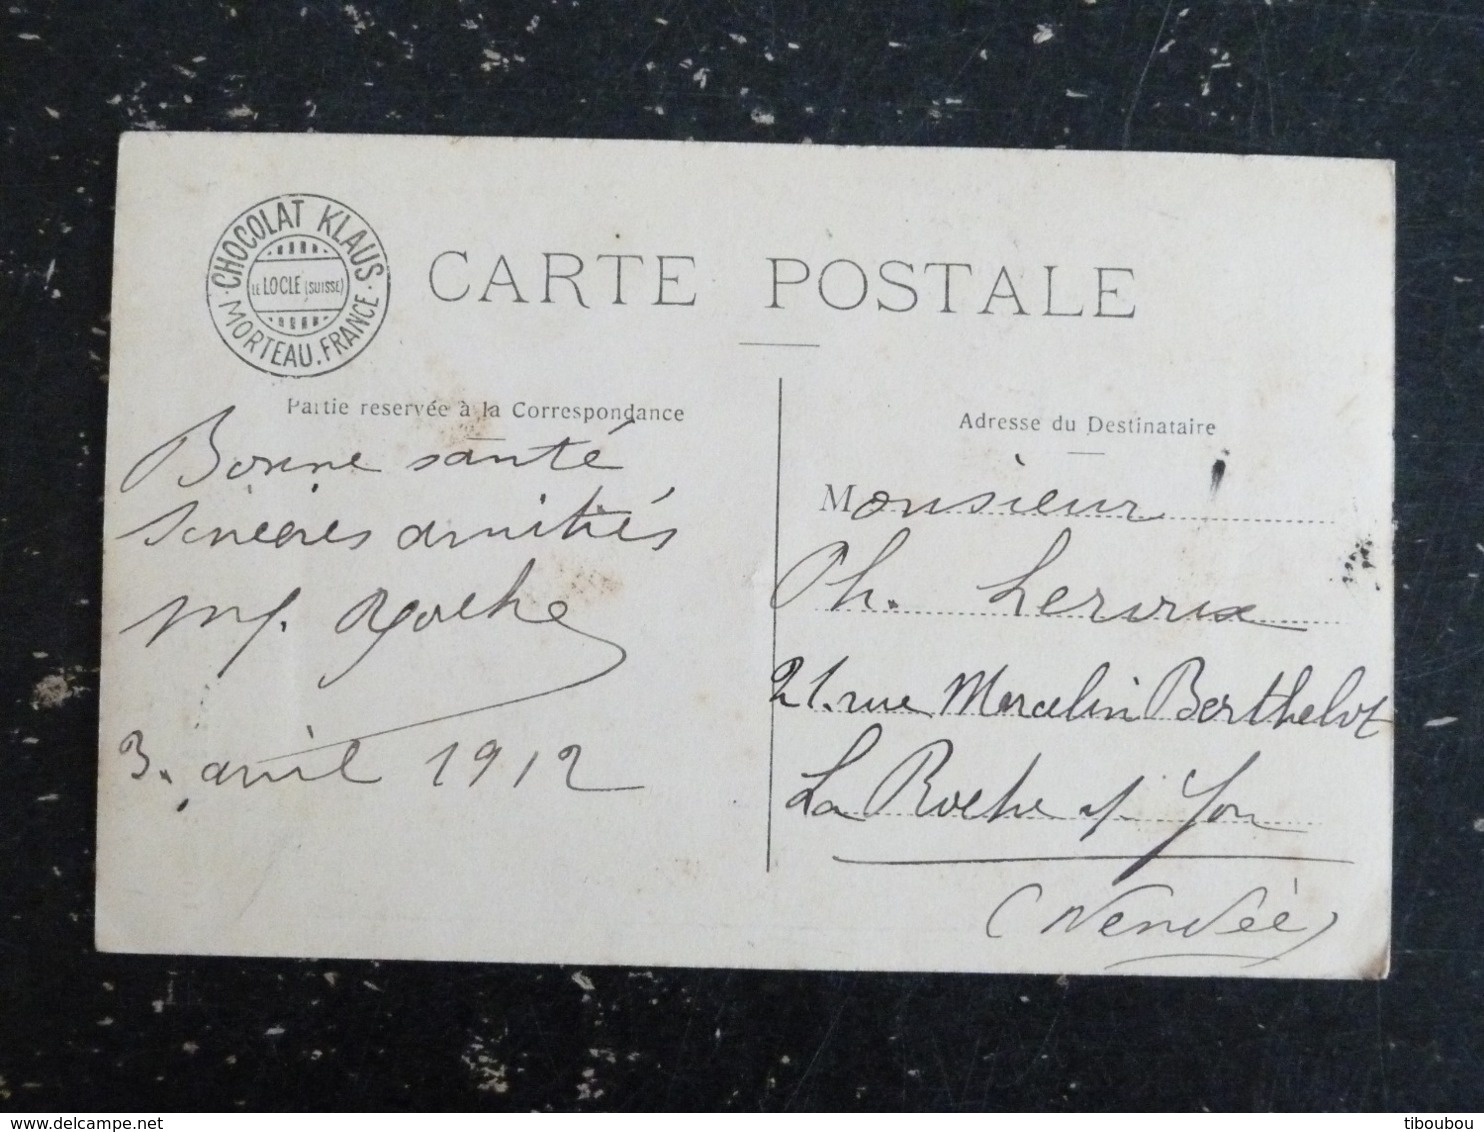 CHOCOLAT KLAUS
LE LOCLE (SUISSE)
MORTEAU. FRANCE
CARTE POSTALE
Partie reservée à la Correspondance
Bonne santé
sincères amitiés
3. avril 1912
Adresse du Destinataire
Monsieur
Ch. Leroux
21. rue Marcelin Berthelot
La Roche s/ Yon
(Vendée)
tiboubou
www.delcampe.net